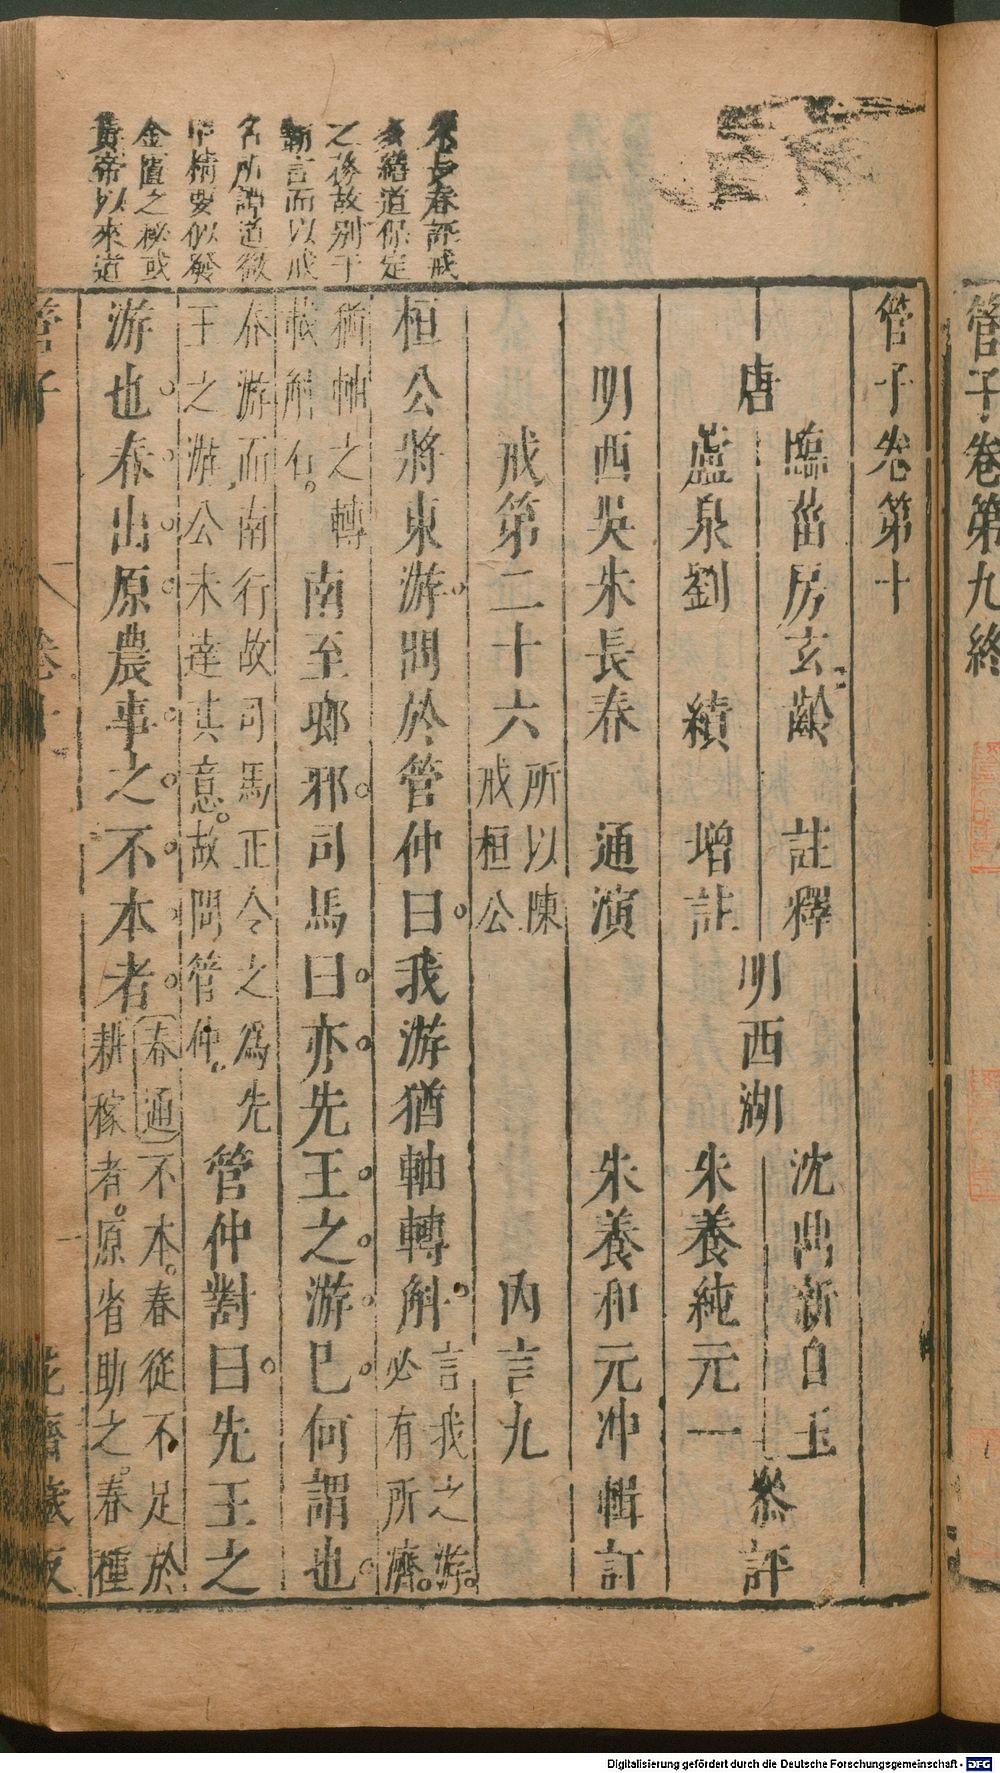 管子卷第九終
管子卷第十
唐 臨菑房玄齡 註釋
蘆泉劉 績 增註
明西湖 沈鼎新自玉
朱養純元一 叅評
明西吳朱長春 通演 朱養和元冲輯訂
戒第二十六 所以陳戒桓公 內言九
桓公將東游問於管仲曰我游猶軸轉斛 言我之游必有所濟
猶軸之轉載斛石 南至瑯邪司馬曰亦先王之游已何謂也
春游而南行故司馬正令之為先王之游公未達其意故問管仲 管仲對曰先王之
游也春出原農事之不本者 春通不本春從不足於耕稼者原省助之春種
朱長春評戒
繕道保定
之後故別于
言而以戒
名所謂道微
精要似發
金匱之秘或
黃帝以來道
管子
卷十
花齋藏板
Digitalisierung gefördert durch die Deutsche Forschungsgemeinschaft - DFG